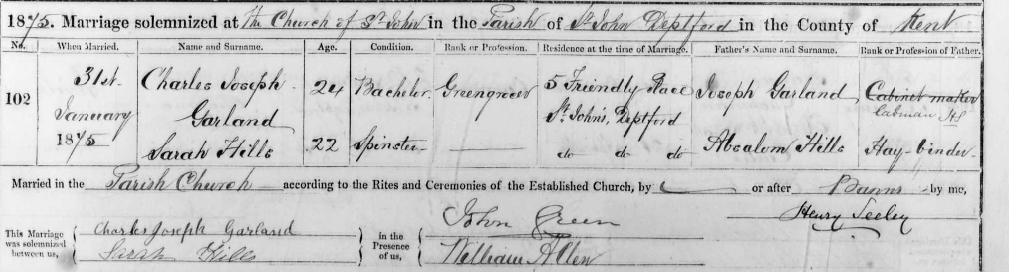 1875. Marriage solemnized at The Church of St John in the Parish of St John Deptford in the County of Kent
No. When Married. Name and Surname. Age. Condition. Rank or Profession. Residence at the time of Marriage. Father's Name and Surname. Rank or Profession of Father.
102 31st January 1875 Charles Joseph Garland 24 Bachelor Greengrocer 5 Friendly Place St John's, Deptford Joseph Garland Cabinet maker Cabman HS
Sarah Hills 22 Spinster do do do Absalom Hills Hay-binder
Married in the Parish Church according to the Rites and Ceremonies of the Established Church, by or after Banns by me,
Henry Seeley
This Marriage was solemnized between us, Charles Joseph Garland
Sarah Hills
in the Presence of us, John Green
William Allen